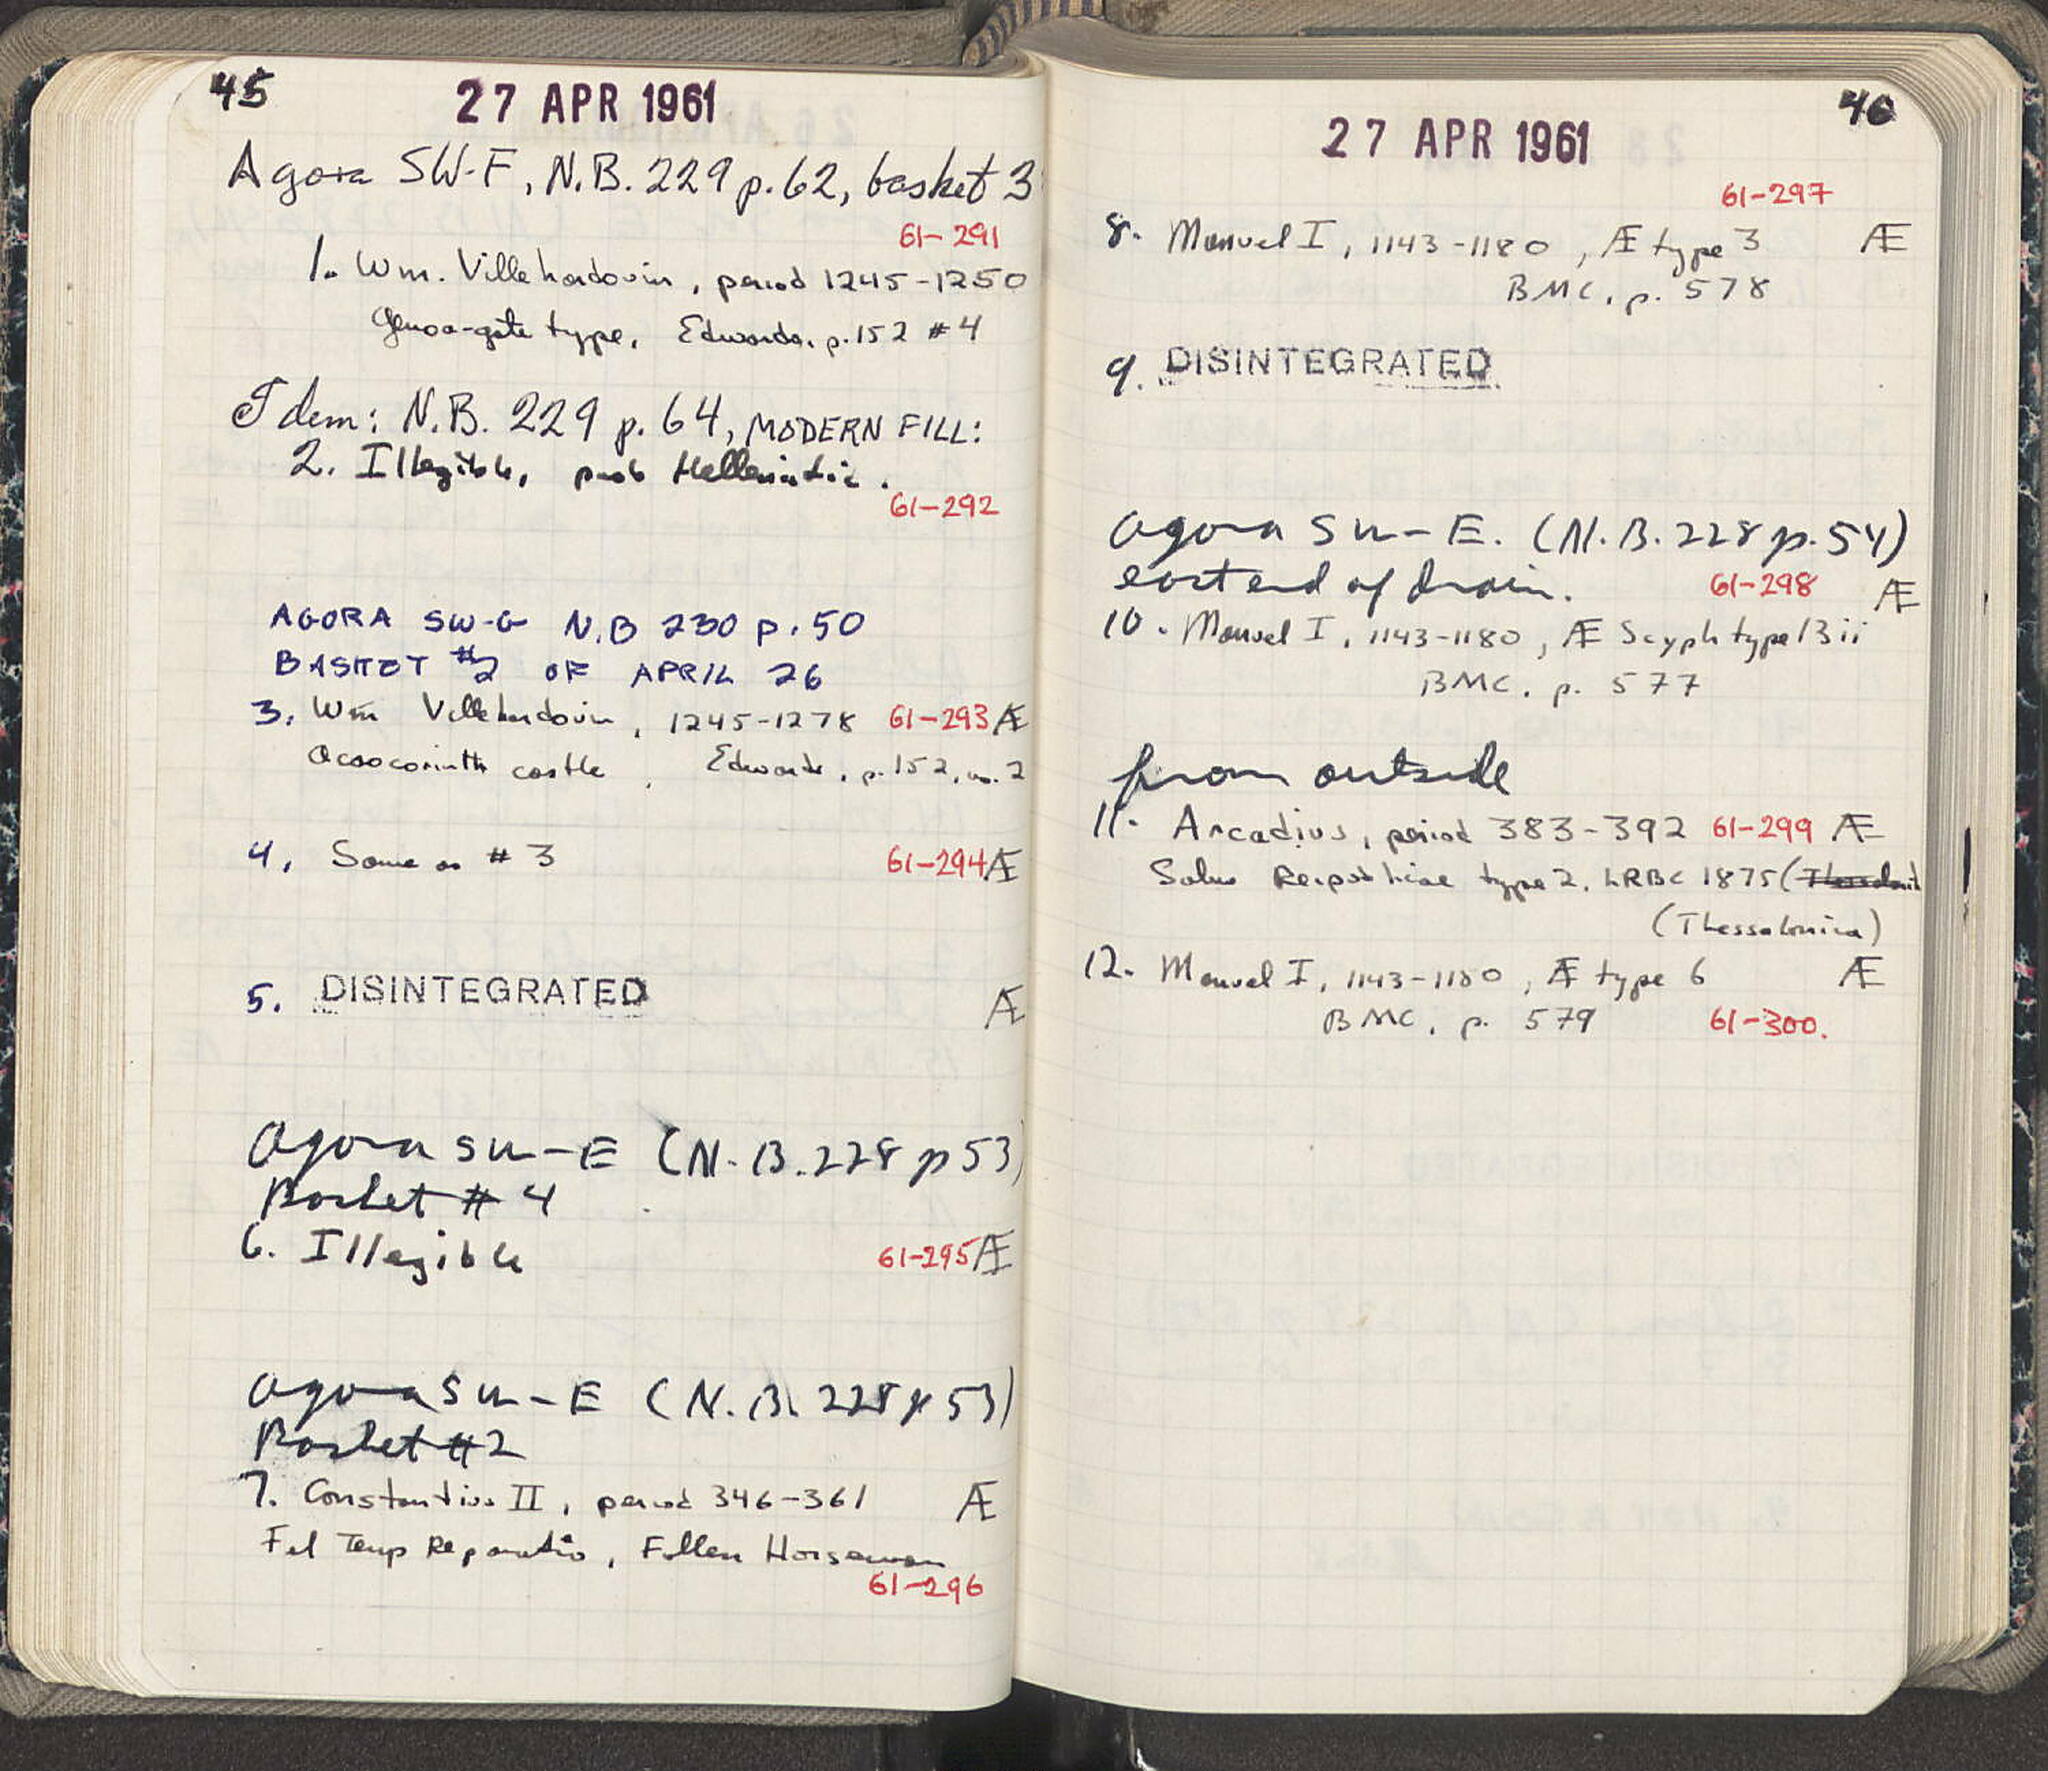 45
27 APR 1961
Agora SW-F, N.B. 229 p. 62, basket 3
61-291
1. Wm. Villehardouin, period 1245-1250
Genoa-gate type, Edwards, p. 152 #4
Idem: N.B. 229 p. 64, MODERN FILL:
2. Illegible, prob Hellenistic.
61-292
AGORA SW-G N.B 230 p. 50
BASKET #2 OF APRIL 26
3. Wm Villehardouin, 1245-1278 61-293 Æ
Acrocorinth castle, Edwards, p. 152, no. 2
4. Same as #3 61-294 Æ
5. DISINTEGRATED Æ
Agora SW-E (N.B. 228 p 53)
Basket #4
6. Illegible 61-295 Æ
Agora SW-E (N.B. 228 p 53)
Basket #2
7. Constantius II, period 346-361 Æ
Fel Temp Reparatio, Fallen Horseman
61-296
46
27 APR 1961
61-297
8. Manuel I, 1143-1180, Æ type 3 Æ
BMC, p. 578
9. DISINTEGRATED
Agora SW-E. (N.B. 228 p. 54)
east end of drain. 61-298 Æ
10. Manuel I, 1143-1180, Æ Scyph type 13 ii
BMC, p. 577
from outside
11. Arcadius, period 383-392 61-299 Æ
Salus Reipublicae type 2, LRBC 1875 (
(Thessalonica)
12. Manuel I, 1143-1180, Æ type 6 Æ
BMC, p. 579 61-300.